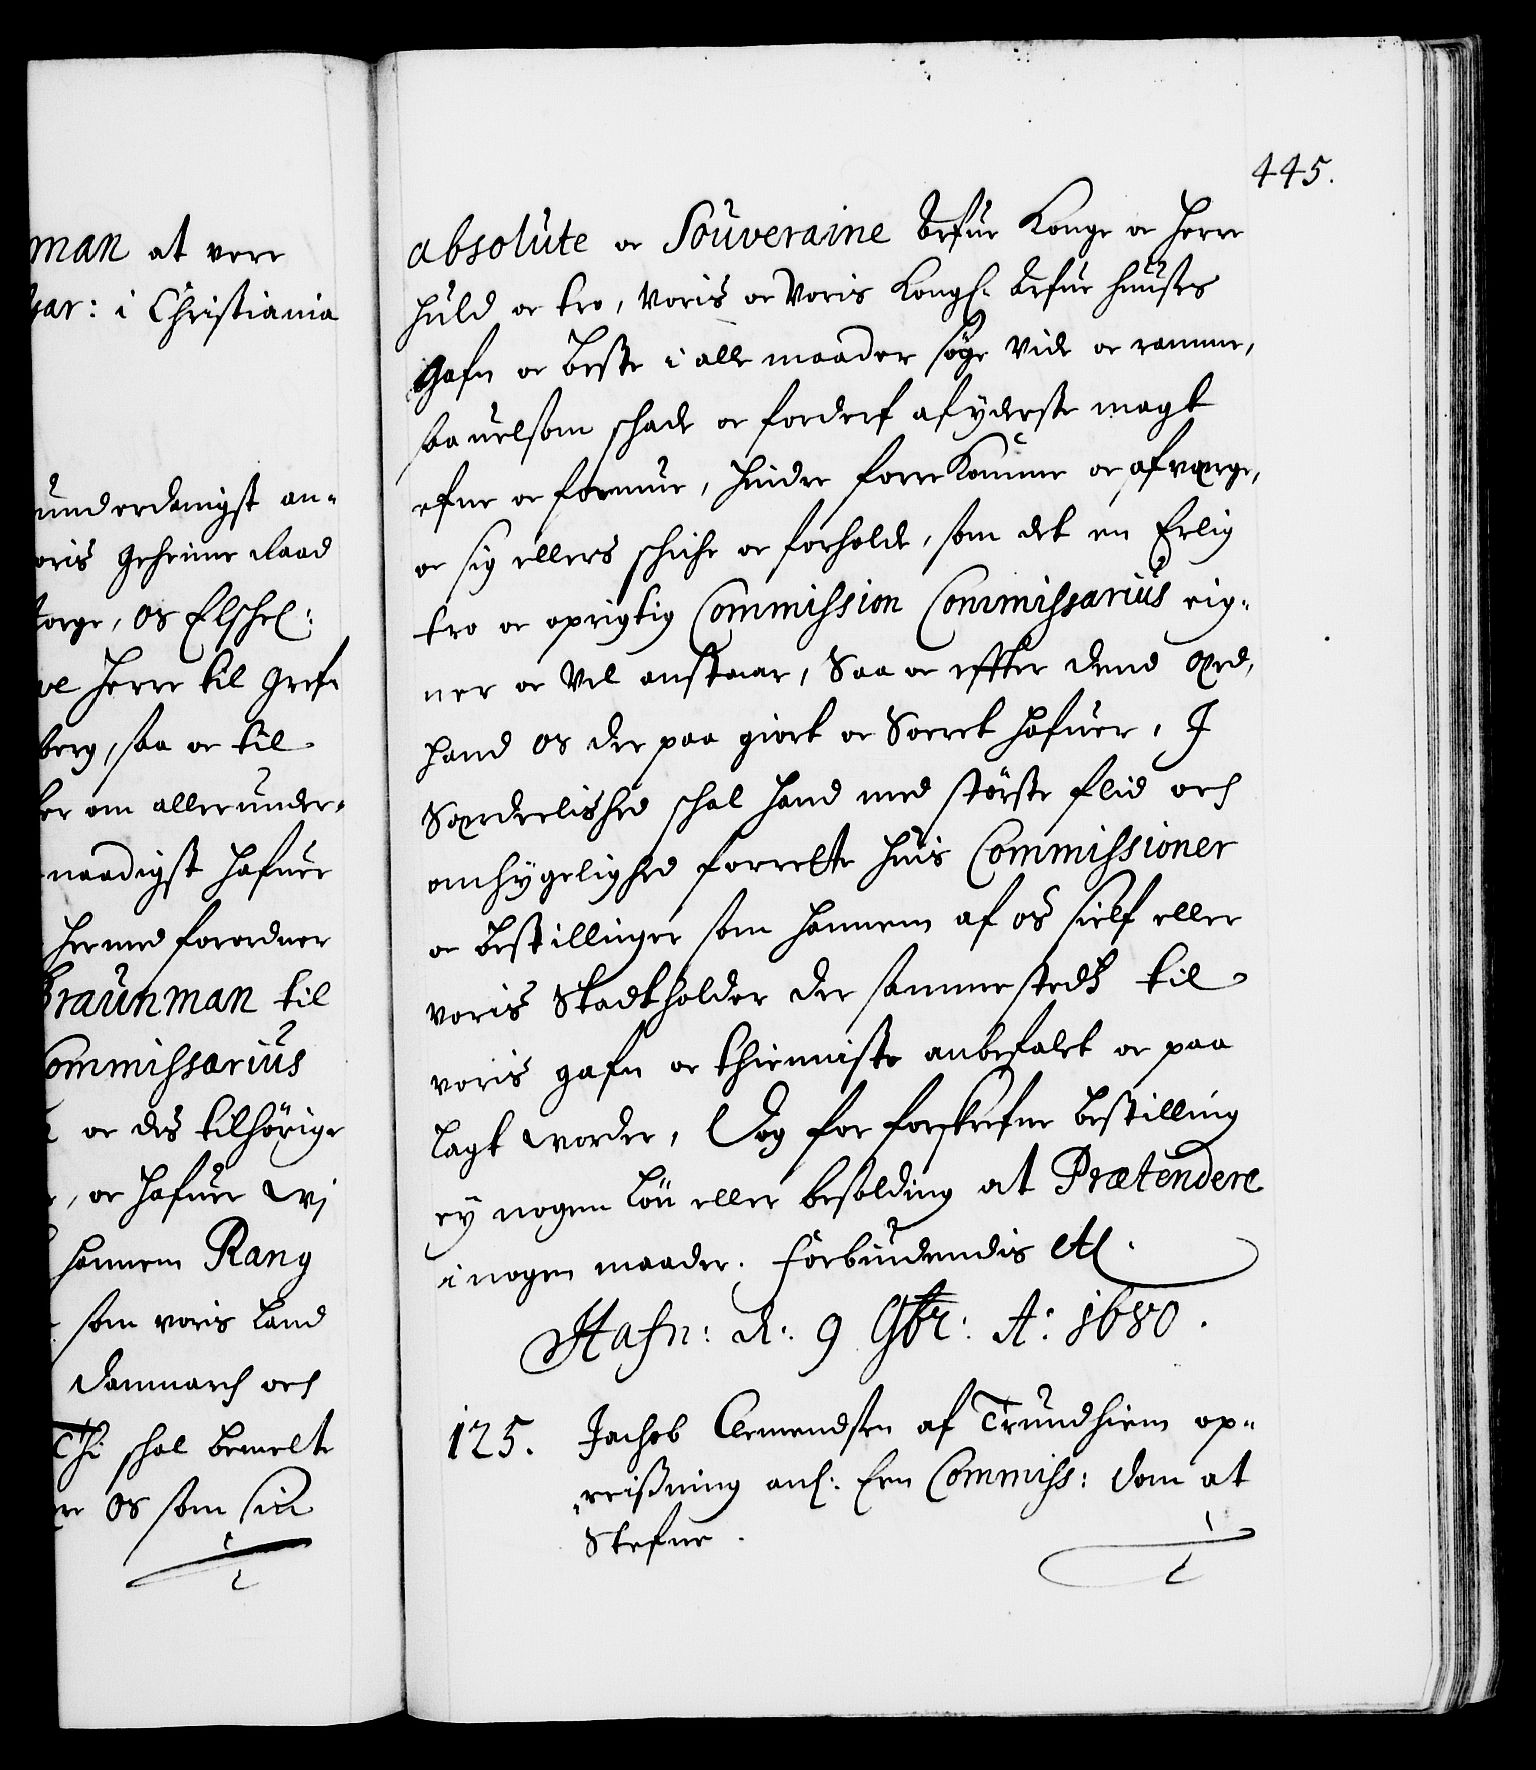 man at vere
gar: i Christiania
underdanigst an-
oris geheime Raad
torge, os Elschel:
ve Herre til Gref-
berg, saa oc til
ker om allerunder-
naadigst hafuer
hermed forordner
Braunman til
Commissarius
oc des tilhörige
, oc hafuer wj
hannem Rang
som voris Land
Danmarch och
Thi schal bemelte
er os som sin
445.
absolute oc Souveraine Arfue Konge oc Herre
huld oc tro, voris oc Voris Kongl. Arfue huuses
gafn oc beste i alle maader söge vide oc ramme,
saauelsom schade oc forderf af yderste magt
efne oc formue, hindre forrekomme oc afværge,
oc sig ellers schiche oc forholde, som det en Erlig
tro oc oprigtig Commission Commissarius eig-
ner oc Vel anstaar, Saa oc effter dend Æed,
hand os der paa giort oc Sorret hafuer, I
Særdeelished schal hand med störste flid och
omhygelighed forrette huis Commissioner
oc bestillinger som hannem af os sielf eller
voris Stadtholder der sammestedtz til
voris gafn oc thienniste anbefalet oc paa
lagt worder, Dog for forskrefne bestilling
ey nogen Lön eller besolding at Prætendere
i nogen maader. Forbiudendis etc.
Hafn: d: 9 9br: A: 1680.
125. Jachob Clemendsen af Trundhiem op-
reißning anl: Een Commiss: dom at
Stefne.